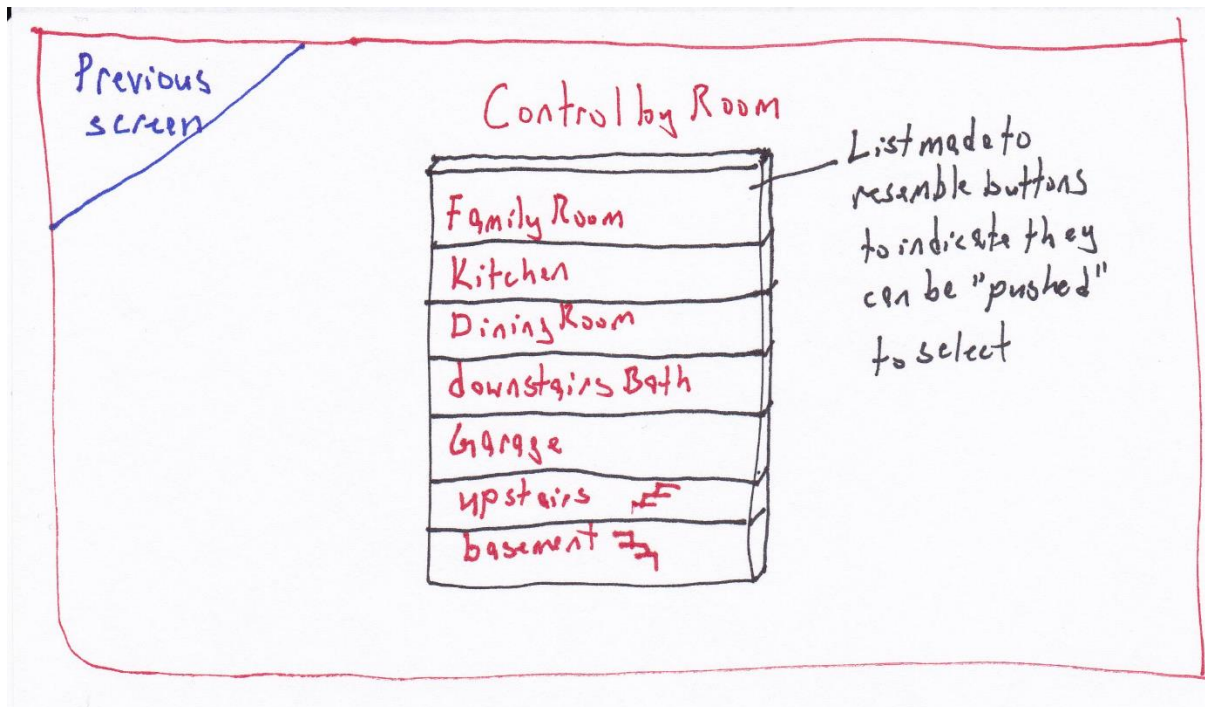 Previous
screen
Control by Room
Family Room
Kitchen
Dining Room
downstairs Bath
Garage
upstairs
basement
List made to
resemble buttons
to indicate they
can be "pushed"
to select